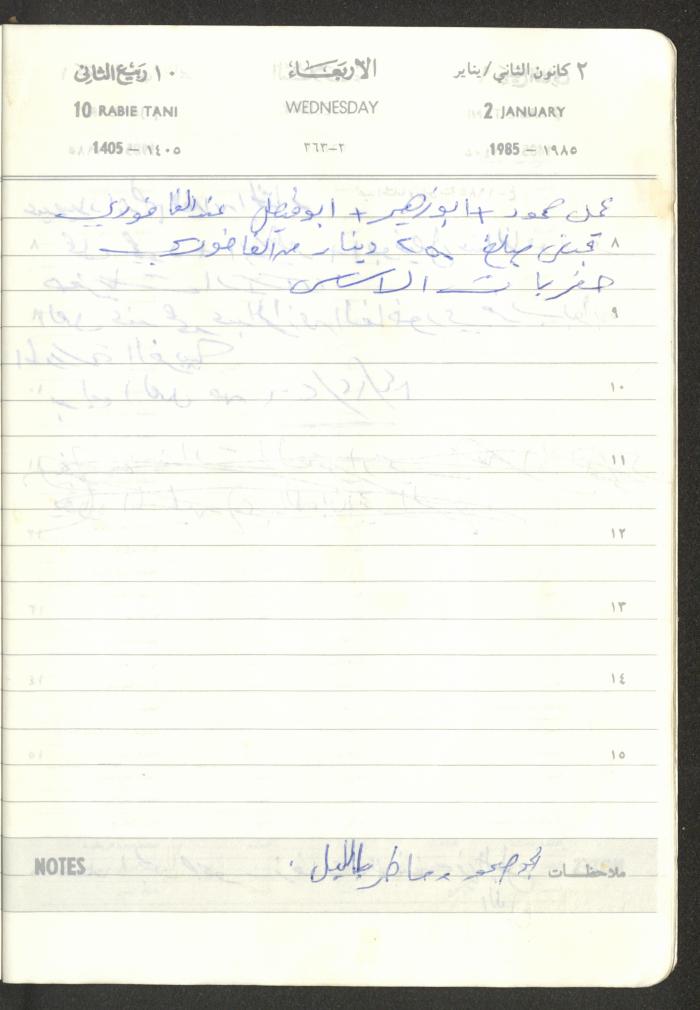 ٢ كانون الثاني/يناير الاربعاء ١٠ ربيع الثاني
2 JANUARY WEDNESDAY 10 RABIE TANI
1985 – ١٩٨٥ ٢–٣٦٣ 1405 – ١٤٠٥
عمل حمود + ابوزهير + ابو فضل عند الفاخوري
٨ قبض مبلغ ٢٥٠ دينار من الفاخوري
حفريات الاساس
٩
١٠
١١
١٢
١٣
١٤
١٥
ملاحظات الجو صحو وماطر بالليل. NOTES